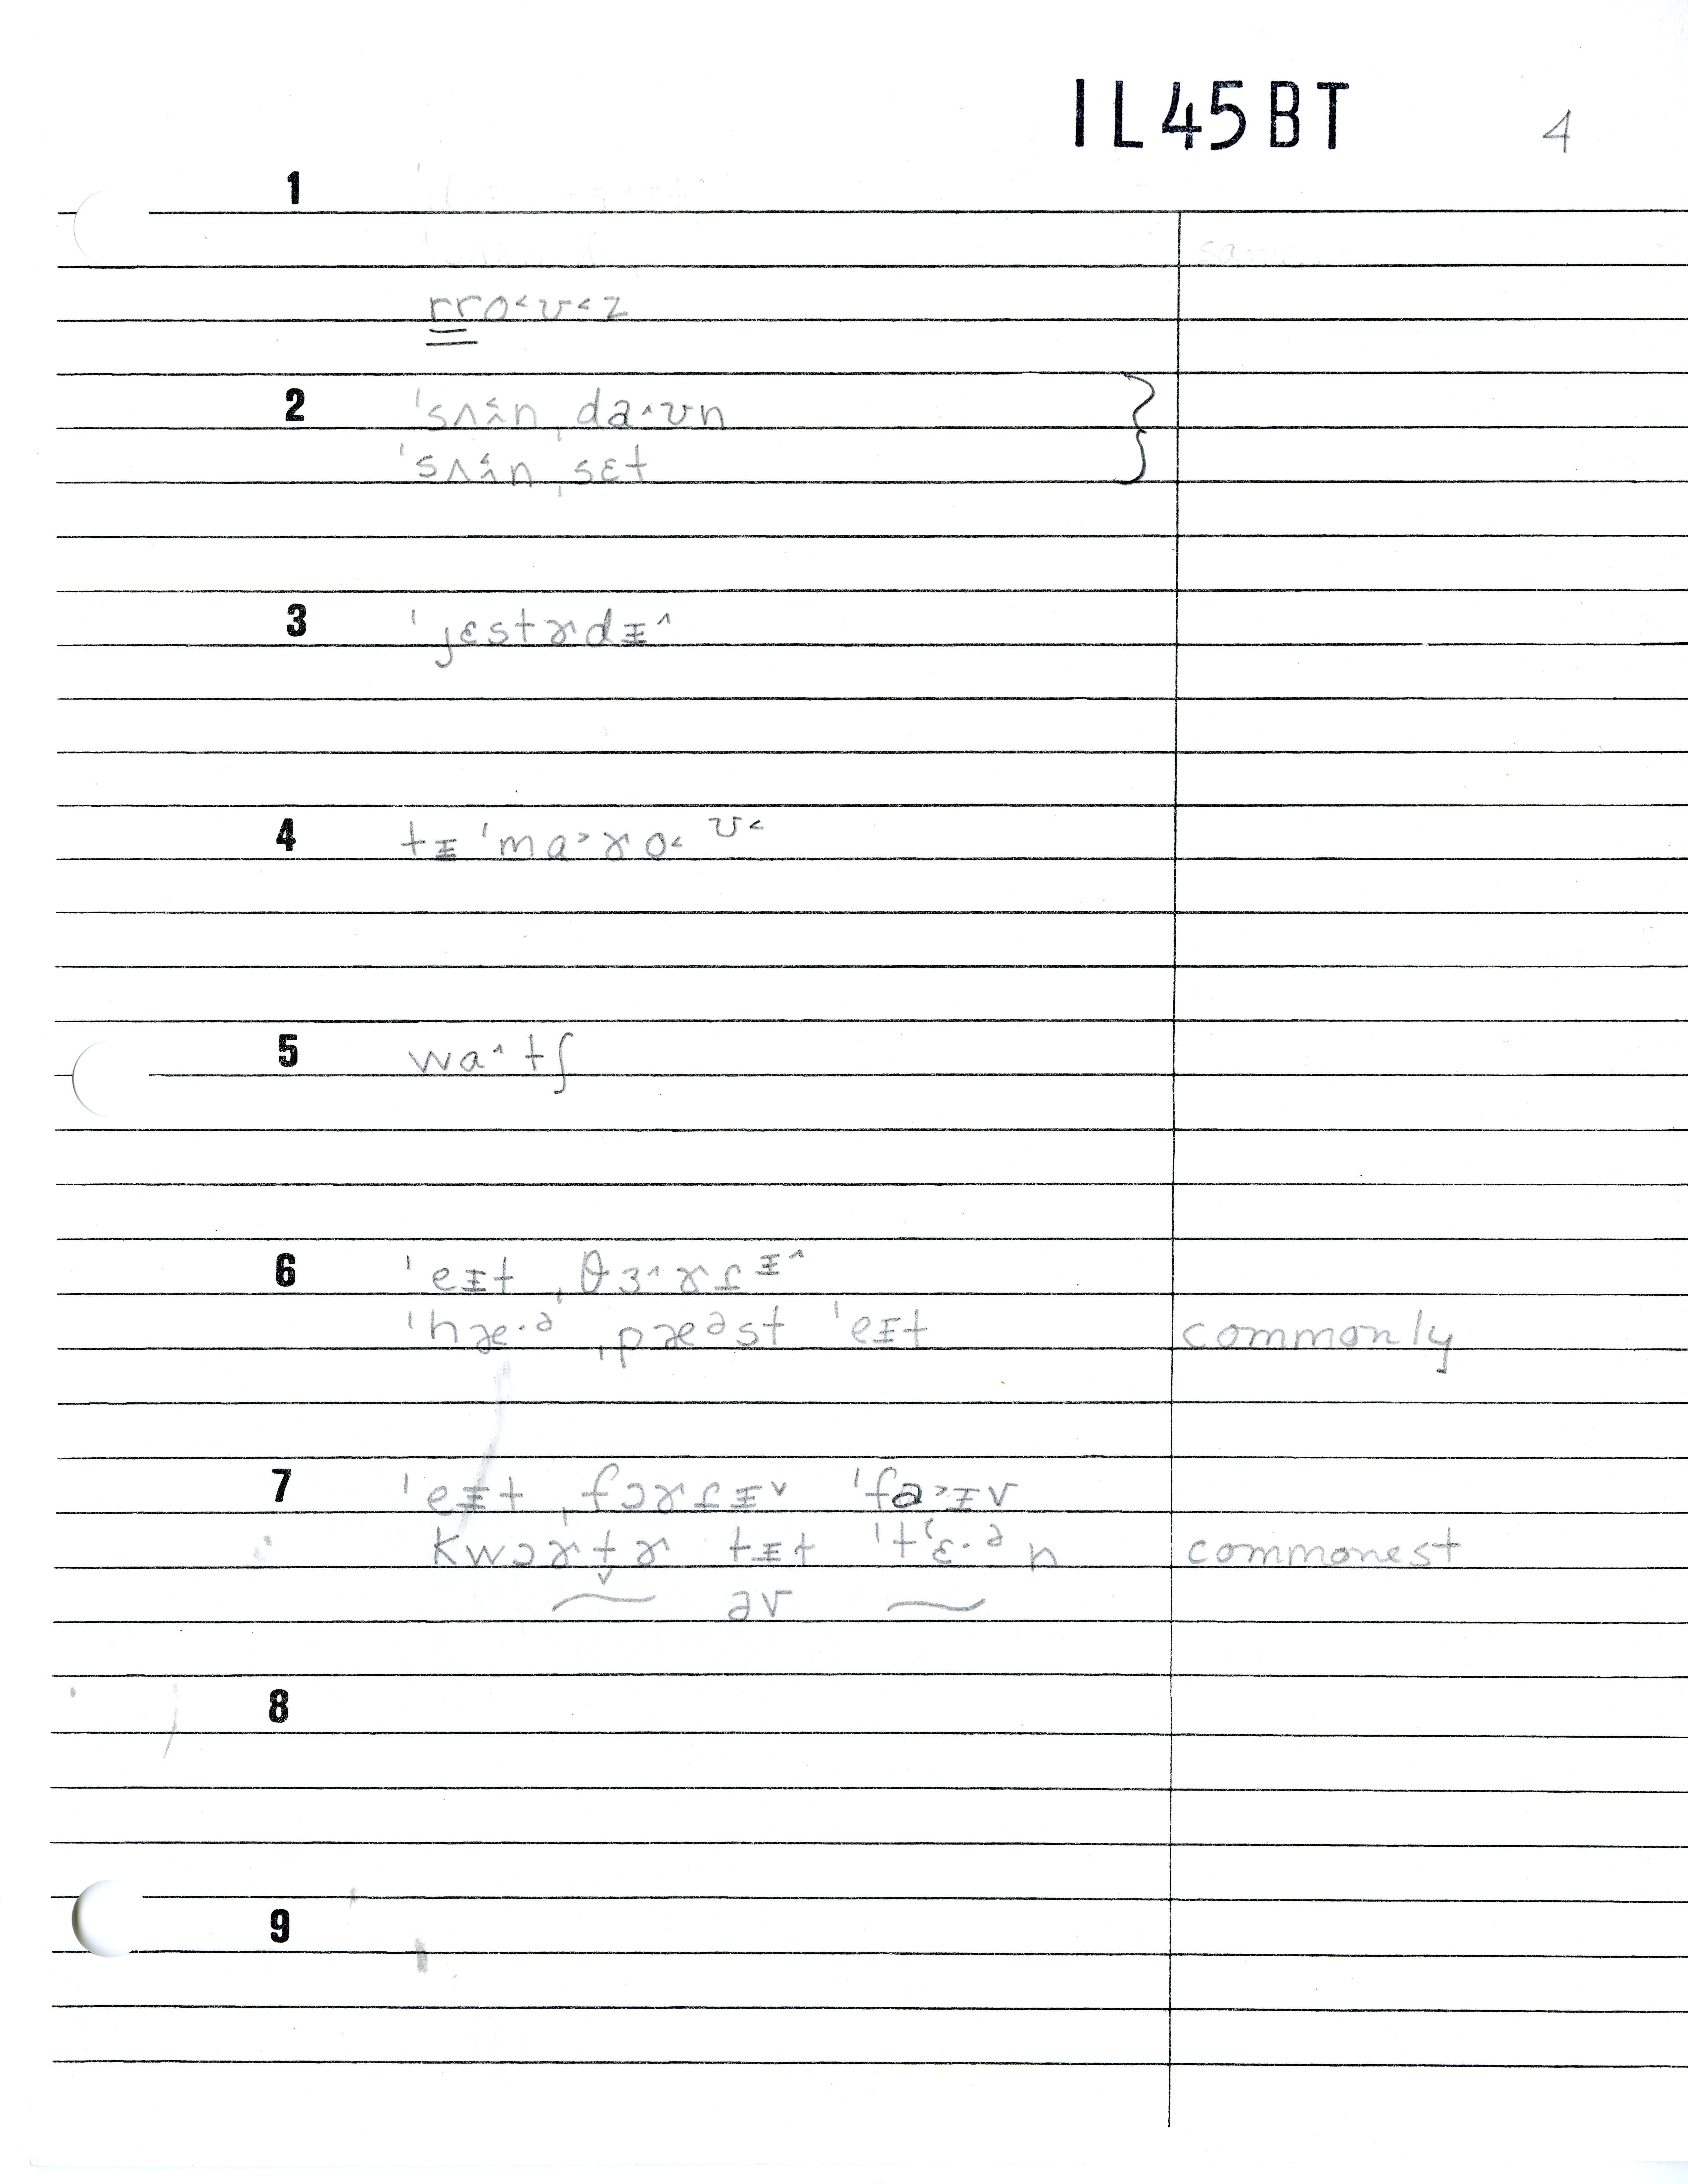 IL45BT 4
1
r̳r̳o˂ʊ˂z
2 ˈsʌn ˌda˄ʊn
ˈsʌn ˌsɛt
3 ˈjɛstɚdᵻ˄
4 tᵻ ˈma˃ɚo˂ ʊ˂
5 wa˄tʃ
6 ˈeᵻt ˌθɜ˄ɚɾᵻ˄
ˈhæ·ə ˌpæəst ˈeᵻt commonly
7 ˈeᵻt ˌfɔɚɾᵻ˅ ˈfa˃ᵻv
kwɔɚt̬ɚ tᵻt ˈtʻɛ·ən commonest
əv
8
9